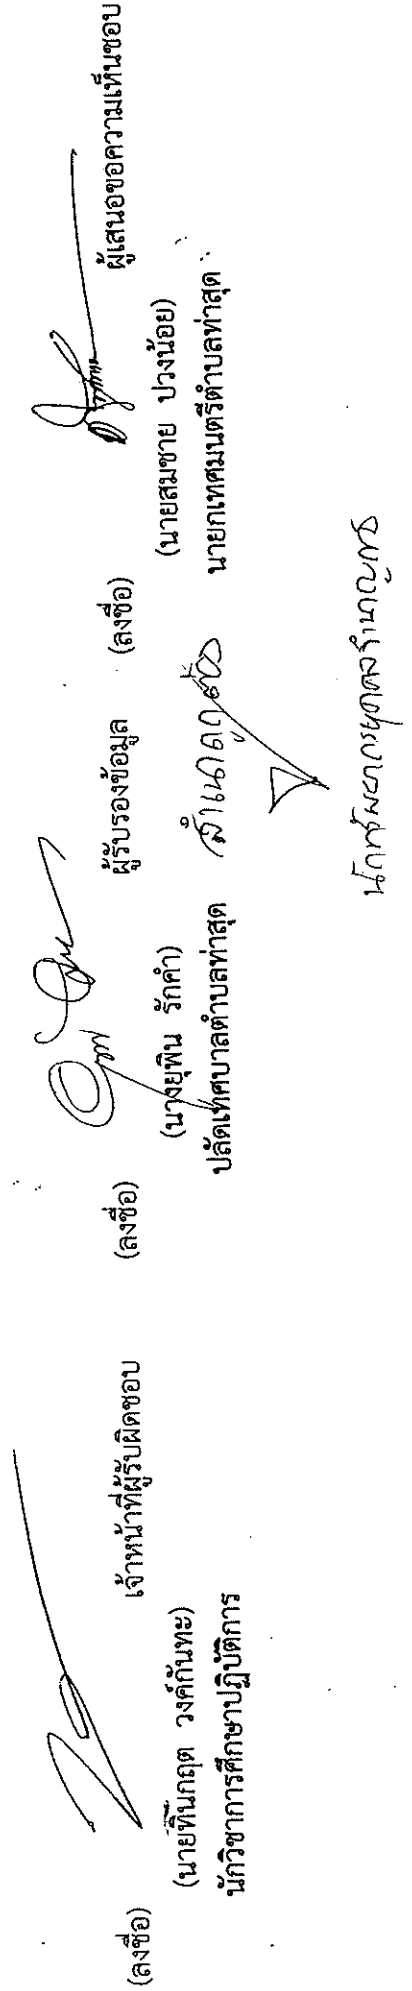 (ลงชื่อ) เจ้าหน้าที่ผู้รับผิดชอบ
(นายทินกฤต วงค์กันทะ)
นักวิชาการศึกษาปฏิบัติการ
(ลงชื่อ) ผู้รับรองข้อมูล
(นางยุพิน รักคำ)
ปลัดเทศบาลตำบลท่าสุด
(ลงชื่อ) ผู้เสนอขอความเห็นชอบ
(นายสมชาย ปวงน้อย)
นายกเทศมนตรีตำบลท่าสุด
สำเนาถูกต้อง
นักทรัพยากรบุคคลชำนาญการ